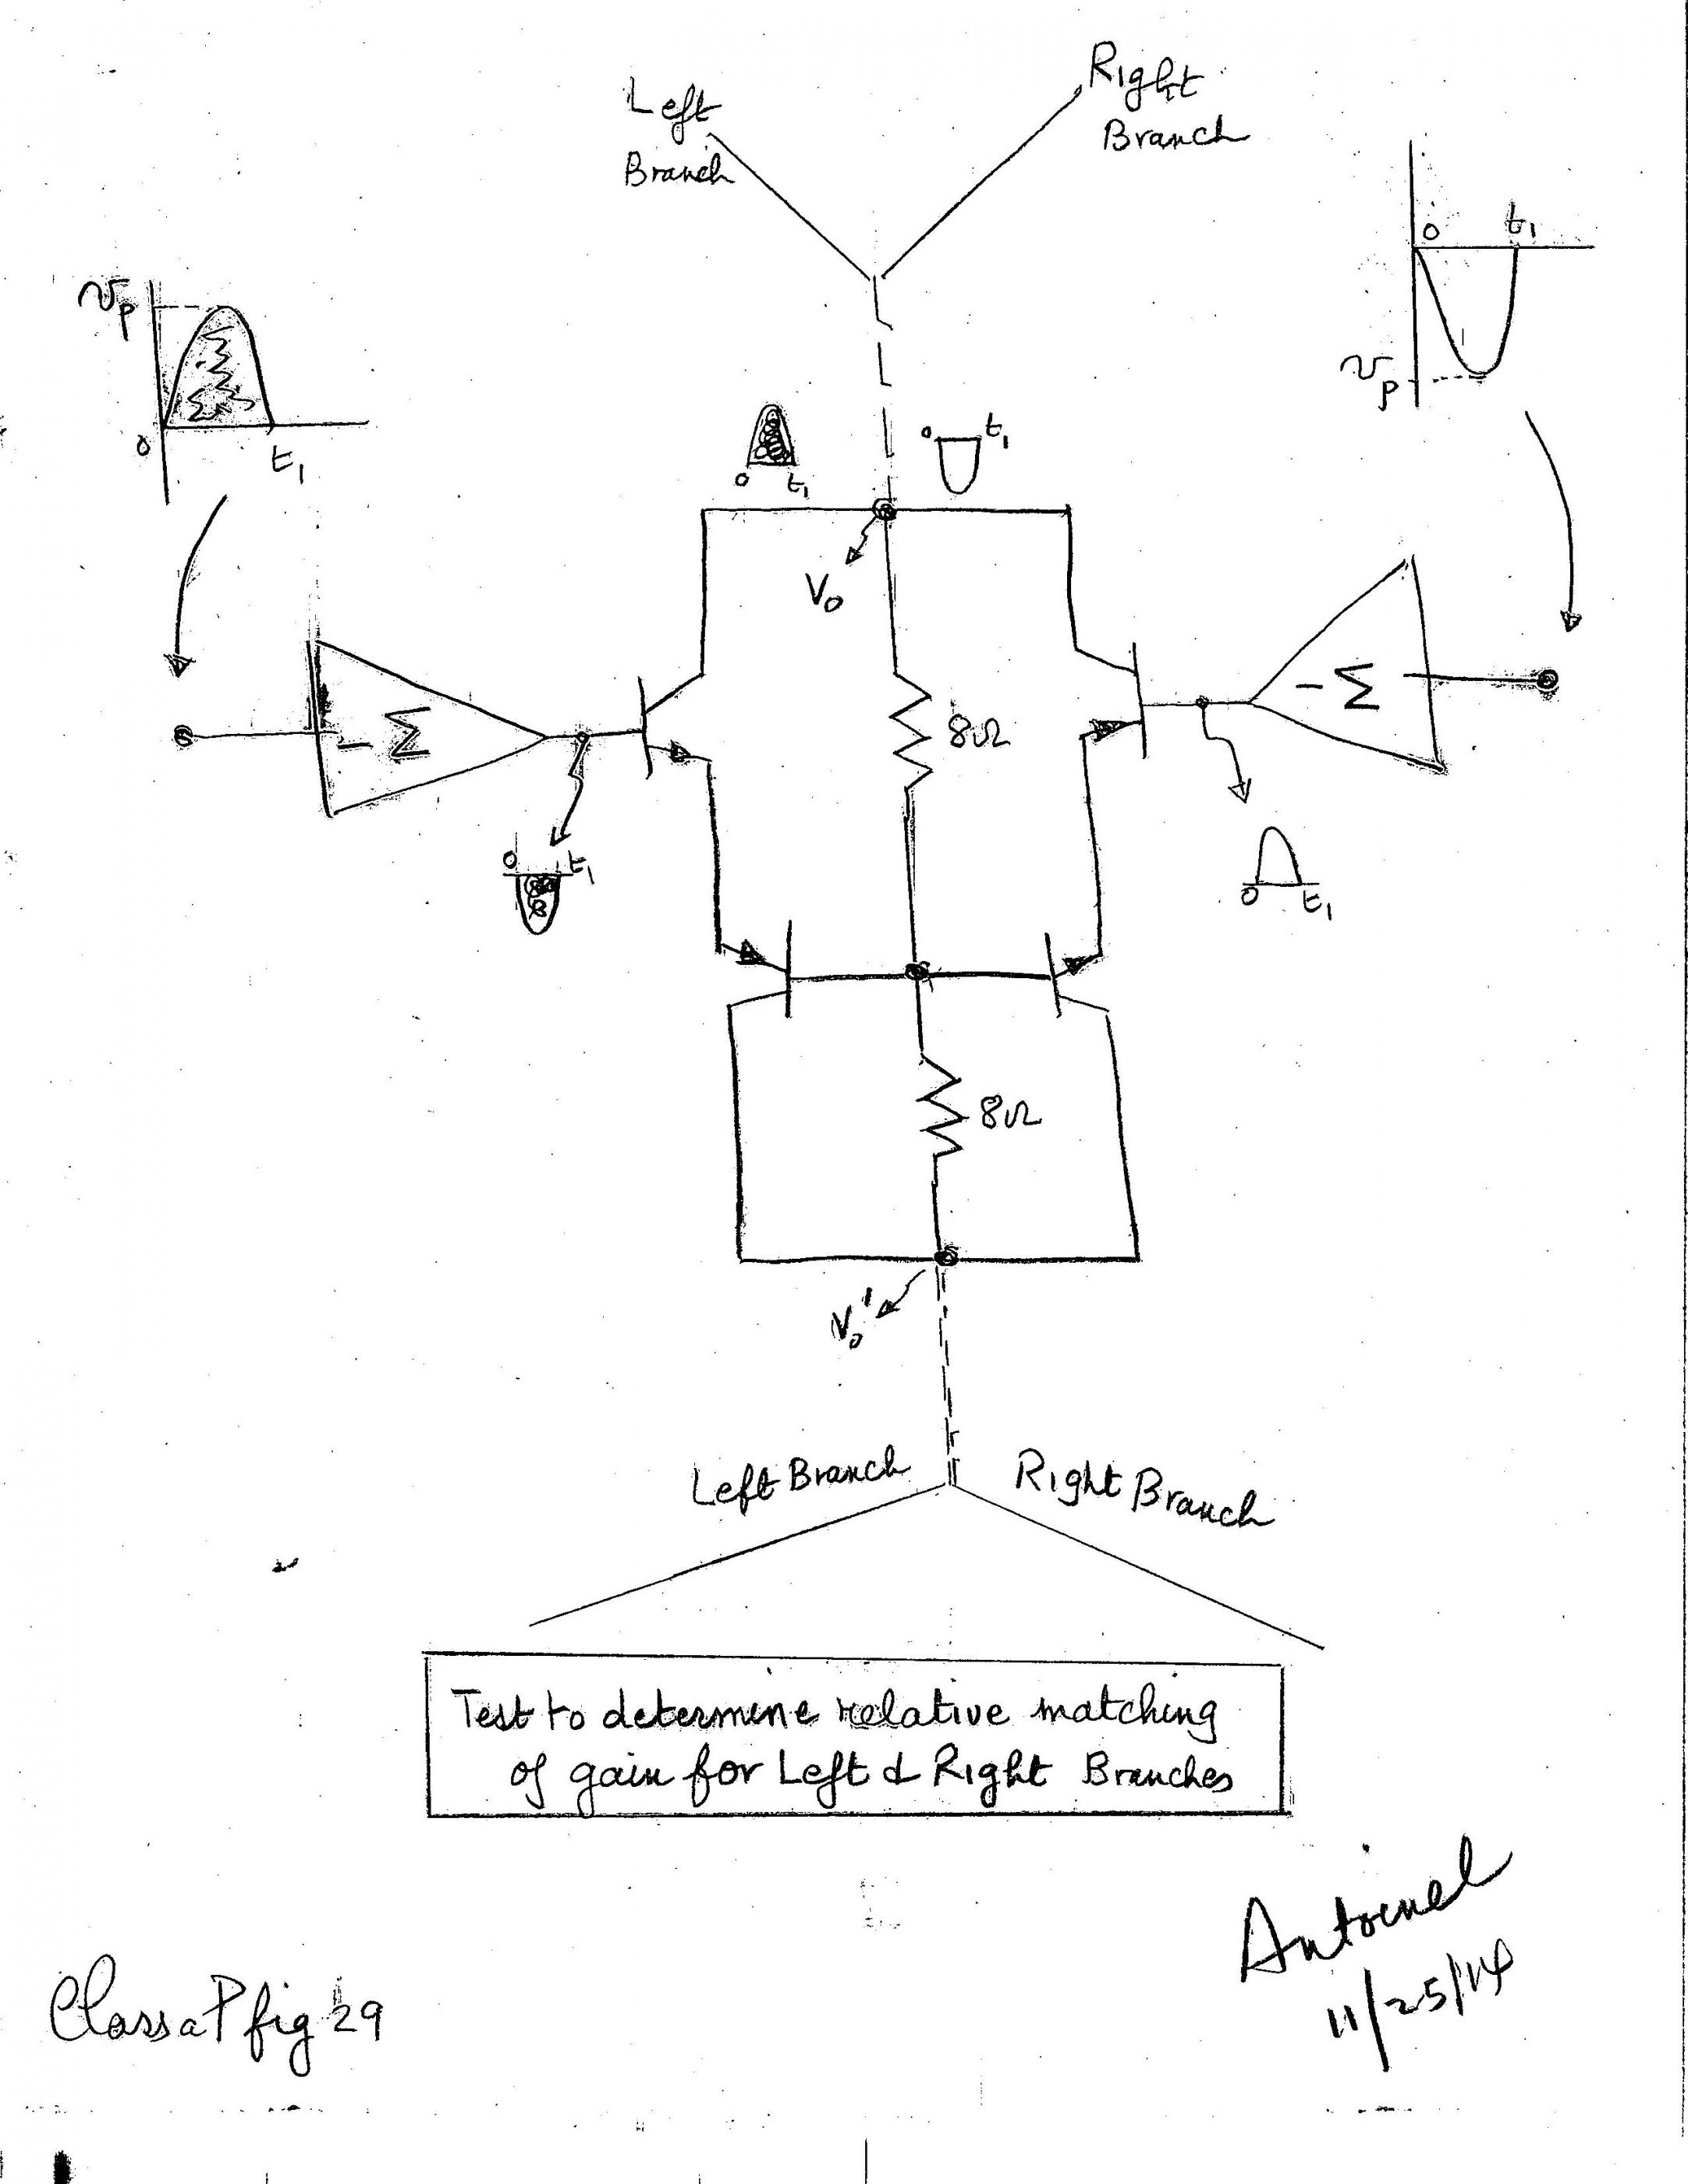 Left
Branch
Right
Branch
0
t₁
vₚ
vₚ
0
t₁
0
t₁
0
t₁
V₀
-Σ
8Ω
-Σ
0
t₁
0
t₁
8Ω
V₀'
Left Branch
Right Branch
Test to determine relative matching
of gain for Left & Right Branches
Antoinel
11/25/14
ClassaP fig 29